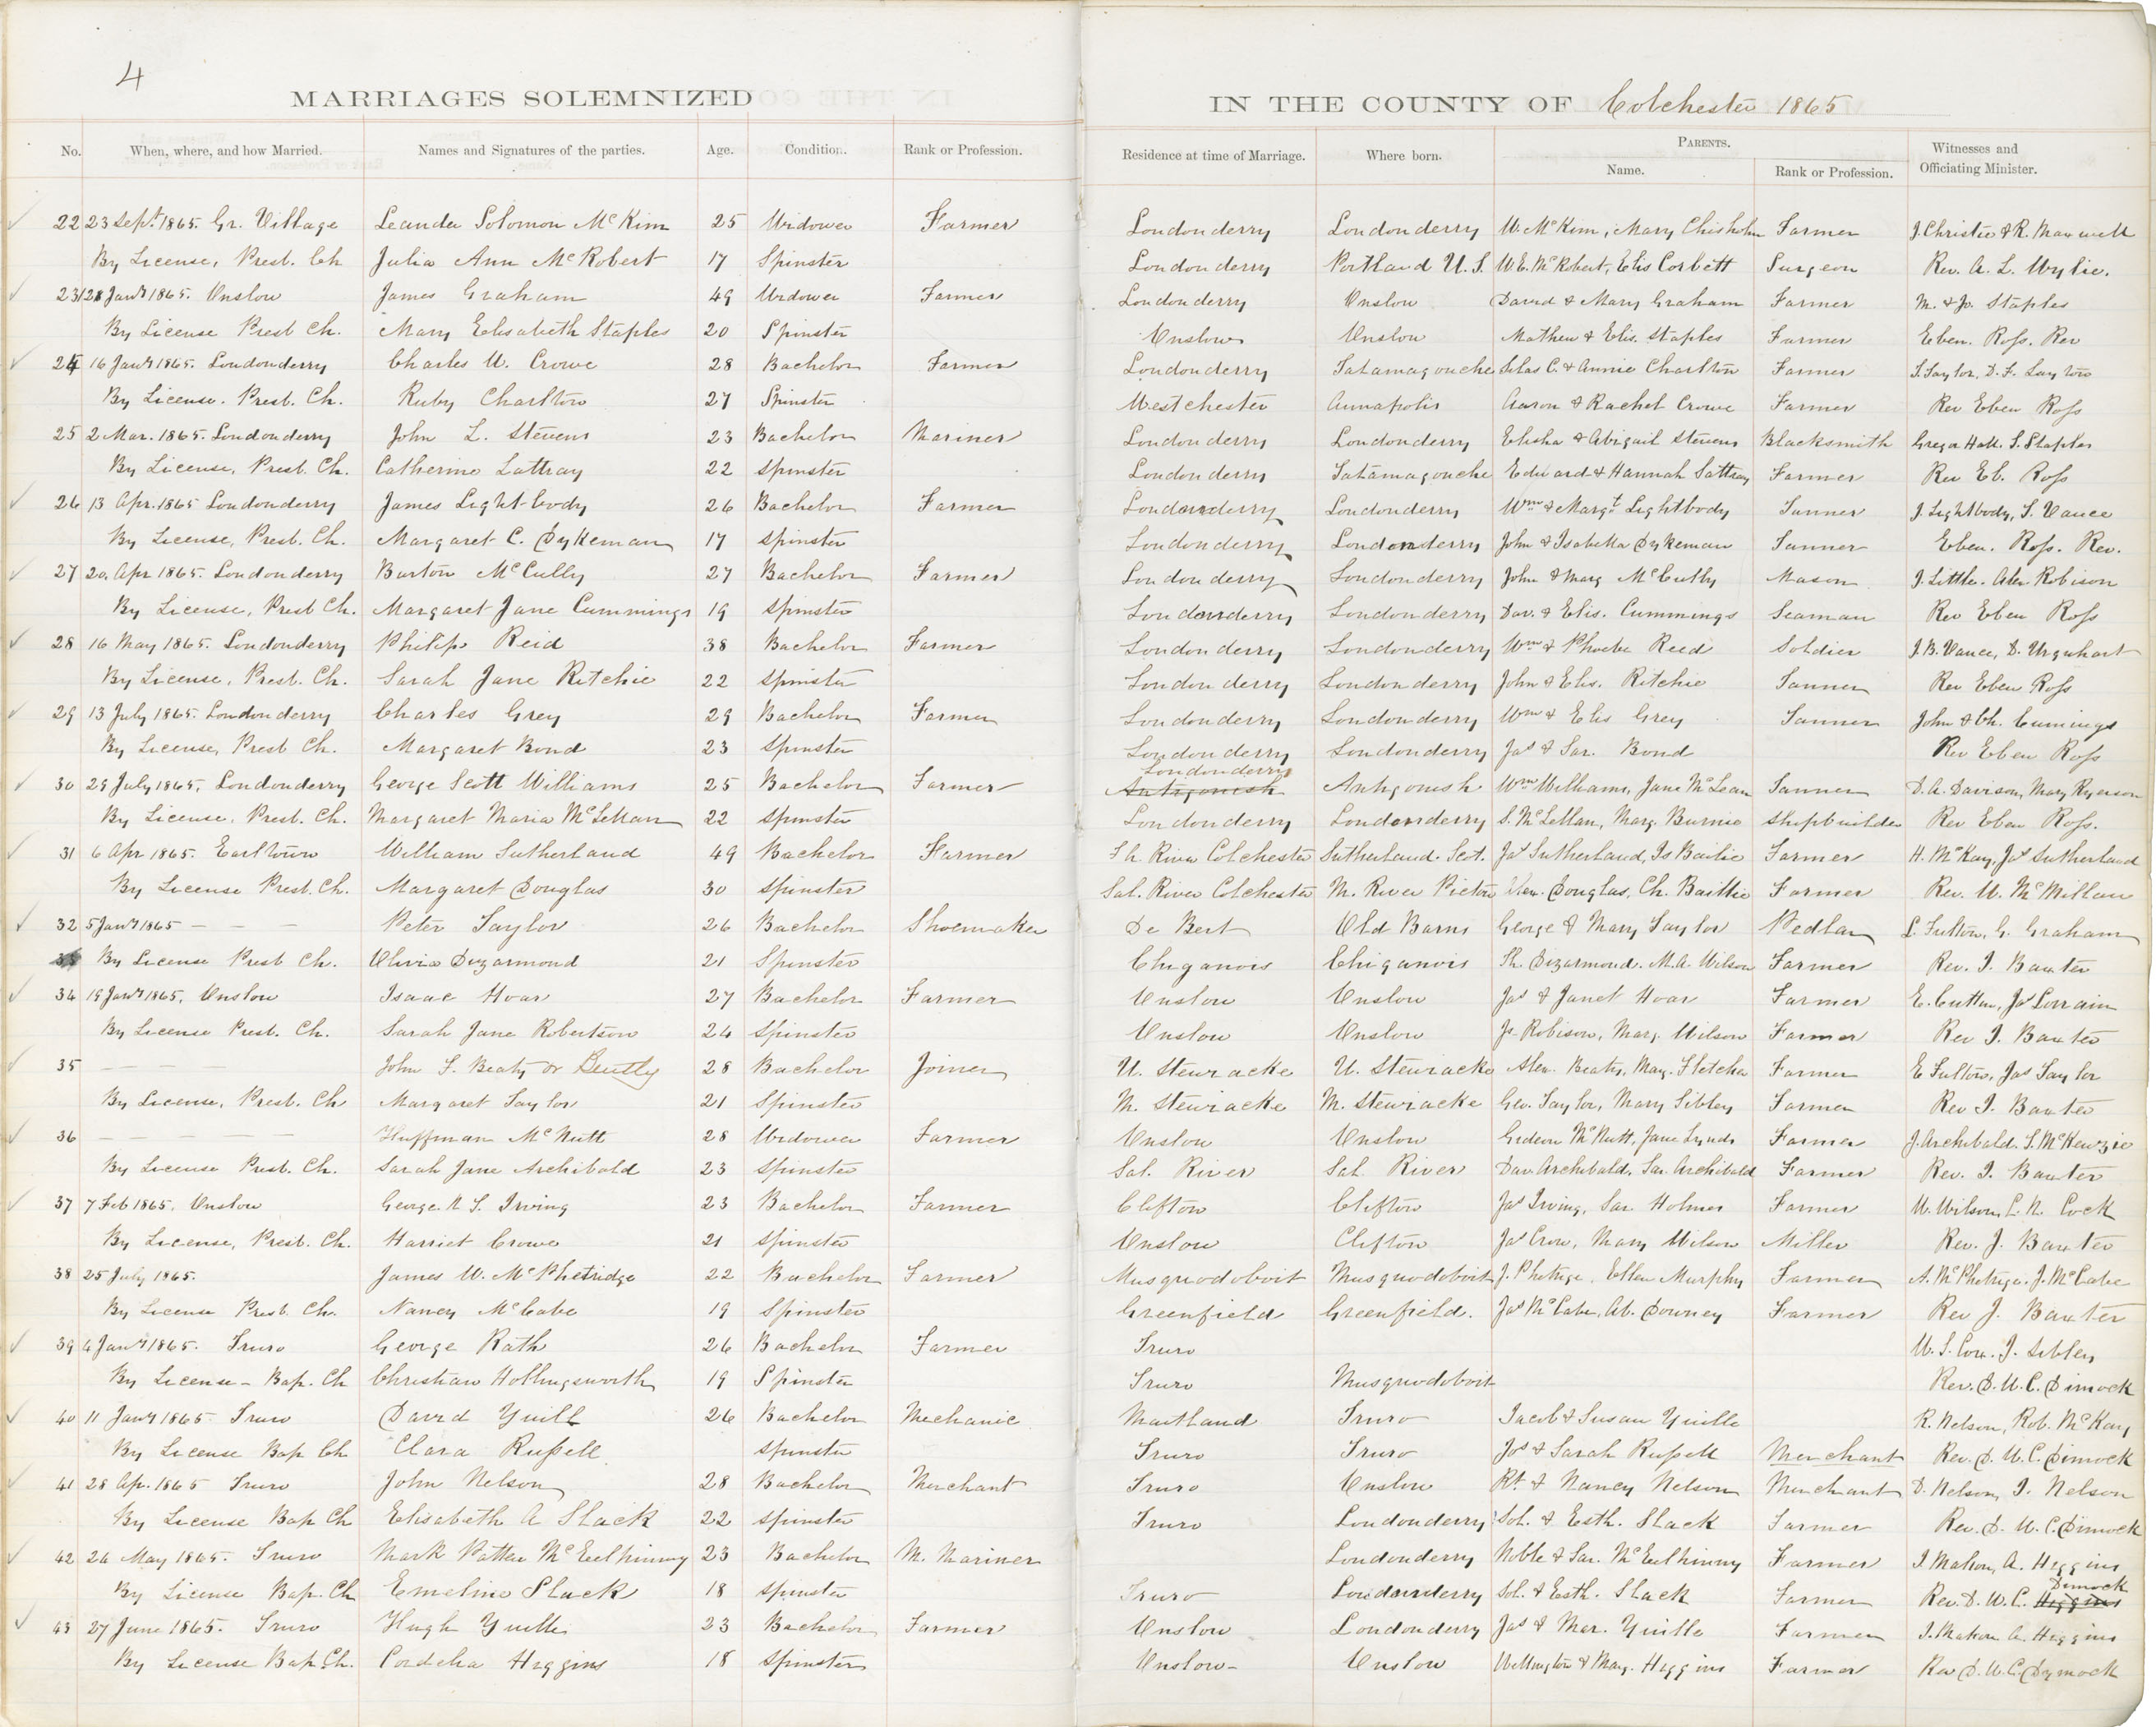 4
MARRIAGES SOLEMNIZED IN THE COUNTY OF Colchester 1865
No. When, where, and how Married. Names and Signatures of the parties. Age. Condition. Rank or Profession. Residence at time of Marriage. Where born. PARENTS. Name. Rank or Profession. Witnesses and Officiating Minister.
22 23 Sept. 1865. Gr. Village Leander Solomon McKim 25 Widower Farmer Londonderry Londonderry W. McKim, Mary Chisholm Farmer J. Christie & R. Maxwell
By License, Presb. Ch Julia Ann McRobert 17 Spinster Londonderry Portland U.S. W.E. McRobert, Elis Corbett Surgeon Rev. A. L. Wylie.
23 Jany 1865. Onslow James Graham 49 Widower Farmer Londonderry Onslow David & Mary Graham Farmer M. & Jo. Staples
By License Presb Ch. Mary Elisabeth Staples 20 Spinster Onslow Onslow Mathew & Elis. Staples Farmer Eben. Ross. Rev
24 16 Jany 1865. Londonderry Charles W. Crowe 28 Bachelor Farmer Londonderry Tatamagouche Silas C. & Annie Charlton Farmer S. Taylor, D. F. Layton
By License. Presb. Ch. Ruby Charlton 27 Spinster Westchester Annapolis Aaron & Rachel Crowe Farmer Rev Eben Ross
25 2 Mar. 1865. Londonderry John L. Stevens 23 Bachelor Mariner Londonderry Londonderry Elisha & Abigail Stevens Blacksmith Gregor Hall. S. Staples
By License, Presb. Ch. Catherine Lattray 22 Spinster Londonderry Tatamagouche Edward & Hannah Lattray Farmer Rev Eb. Ross
26 13 Apr. 1865 Londonderry James Lightbody 26 Bachelor Farmer Londonderry Londonderry Wm & Margt. Lightbody Farmer J. Lightbody, S. Vance
By License, Presb. Ch. Margaret C. Dykeman 17 Spinster Londonderry Londonderry John & Isabella Dykeman Farmer Eben. Ross. Rev.
27 20. Apr 1865. Londonderry Burton McCully 27 Bachelor Farmer Londonderry Londonderry John & Marg McCully Mason J. Little. Alex Robison
By License, Presb Ch. Margaret Jane Cummings 19 Spinster Londonderry Londonderry Dav. & Elis. Cummings Seaman Rev Eben Ross
28 16 May 1865. Londonderry Philip Reid 38 Bachelor Farmer Londonderry Londonderry Wm & Phoebe Reed Soldier J.B. Vance, D. Urquhart
By License, Presb. Ch. Sarah Jane Ritchie 22 Spinster Londonderry Londonderry John & Elis. Ritchie Farmer Rev Eben Ross
29 13 July 1865. Londonderry Charles Grey 29 Bachelor Farmer Londonderry Londonderry Wm & Elis Grey Farmer John & Ch. Cumings
By License, Presb Ch. Margaret Bond 23 Spinster Londonderry Londonderry Jas & Sar. Bond Rev Eben Ross
30 29 July 1865, Londonderry George Scott Williams 25 Bachelor Farmer Antigonish Londonderry Antigonish Wm Williams, Jane McLean Farmer D. A. Davison, Mary Ryerson
By License, Presb. Ch. Margaret Maria McLellan 22 Spinster Londonderry Londonderry S. McLellan, Marg. Burnie Shipbuilder Rev Eben Ross.
31 6 Apr 1865. Earltown William Sutherland 49 Bachelor Farmer River Colchester Sutherland. Scot. Jas Sutherland, Is Bailie Farmer H. McKay, Jas Sutherland
By License Presb. Ch. Margaret Douglas 30 Spinster Sal. River Colchester M. River Pictou Alex. Douglas, Ch. Baillie Farmer Rev. W. McMillan
32 5 Jany 1865 – – – Peter Taylor 26 Bachelor Shoemaker De Bert Old Barns George & Mary Taylor Pedlar L. Fulton, G. Graham
33 By License Presb Ch. Olivia Dizarmond 21 Spinster Chiganois Chiganois R. Dizarmond. M.A. Wilson Farmer Rev. J. Baxter
34 19 Jany 1865, Onslow Isaac Hoar 27 Bachelor Farmer Onslow Onslow Jas & Janet Hoar Farmer E. Cutten, Jas Lorrain
By License Presb. Ch. Sarah Jane Robertson 24 Spinster Onslow Onslow Jo. Robison, Mary. Wilson Farmer Rev J. Baxter
35 – – – John F. Beaty or Beatty 28 Bachelor Joiner U. Stewiacke U. Stewiacke Alex. Beaty, Mary. Fletcher Farmer E Fulton, Jas Taylor
By License, Presb. Ch Margaret Taylor 21 Spinster M. Stewiacke M. Stewiacke Geo. Taylor, Mary Sibley Farmer Rev J. Baxter
36 – – – – Huffman McNutt 28 Widower Farmer Onslow Onslow Gideon McNutt, Jane Lynds Farmer J. Archibald. S. McKenzie
By License Presb. Ch. Sarah Jane Archibald 23 Spinster Sal. River Sal. River Dav Archibald, Sar. Archibald Farmer Rev. J. Baxter
37 7 Feb 1865. Onslow George. N S. Irving 23 Bachelor Farmer Clifton Clifton Jas Irving, Sar. Holmes Farmer W. Wilson, L. N. Cock
By License, Presb. Ch. Harriet Crowe 21 Spinster Onslow Clifton Jas Crow, Mary Wilson Miller Rev. J. Baxter
38 25 July 1865. James W. McPhetridge 22 Bachelor Farmer Musquodoboit Musquodoboit J. Phetrige, Ellen Murphy Farmer A. McPhetrige. J. McCabe
By License Presb. Ch. Nancy McCabe 19 Spinster Greenfield Greenfield. Jas McCabe, Ab. Downey Farmer Rev J. Baxter
39 4 Jany 1865. Truro George Rath 26 Bachelor Farmer Truro W. S. Cox. J. Sibley
By License – Bap. Ch Christian Hollingsworth 19 Spinster Truro Musquodoboit Rev. D. W. C. Dimock
40 11 Jany 1865. Truro David Yuill 26 Bachelor Mechanic Maitland Truro Jacob & Susan Yuille R. Nelson, Rob. McKay
By License Bap Ch Clara Russell Spinster Truro Truro Jos & Sarah Russell Merchant Rev. D. W. C. Dimock
41 28 Ap. 1865 Truro John Nelson 28 Bachelor Merchant Truro Onslow Rt. & Nancy Nelson Merchant D. Nelson, J. Nelson
By License Bap Ch Elisabeth A Slack 22 Spinster Truro Londonderry Sol. & Esth. Slack Farmer Rev. D. W. C. Dimock
42 24 May 1865. Truro Mark Patten McEelhinny 23 Bachelor M. Mariner Londonderry Noble & Sar. McEelhinny Farmer J. Mahon, A. Higgins
By License Bap. Ch Emeline Slack 18 Spinster Truro Londonderry Sol. & Esth. Slack Farmer Rev. D. W. C. Higgins Dimock
43 27 June 1865. Truro Hugh Yuille 23 Bachelor Farmer Onslow Londonderry Jas & Mar. Yuille Farmer J. Mahon A. Higgins
By License Bap. Ch. Cordelia Higgins 18 Spinster Onslow– Onslow Wellington & Mary. Higgins Farmer Rev D. W. C. Dymock